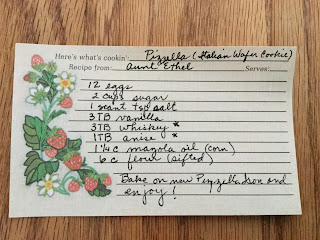 Here's what's cookin': Pizzella (Italian Wafer Cookie)
Recipe from: Aunt Ethel Serves:
12 eggs
2 cups sugar
1 scant tsp salt
3TB vanilla
3TB whiskey *
1TB anise *
1 1/4 c mazola oil (corn)
6 c flour (sifted)
Bake on new and
enjoy!